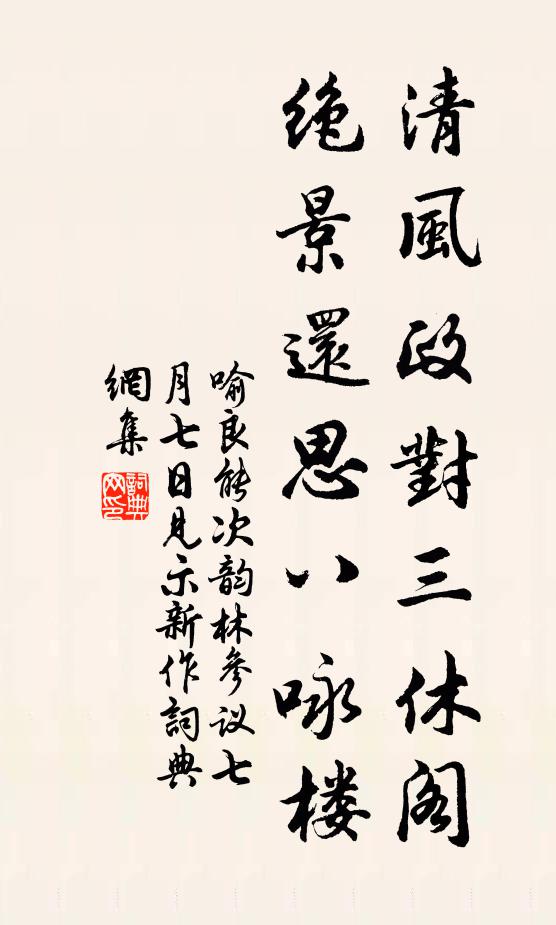 清風政對三休阁
绝景還思八咏楼
喻良能次韵林參议七
月七日见示新作詞典
網集
詞典网印